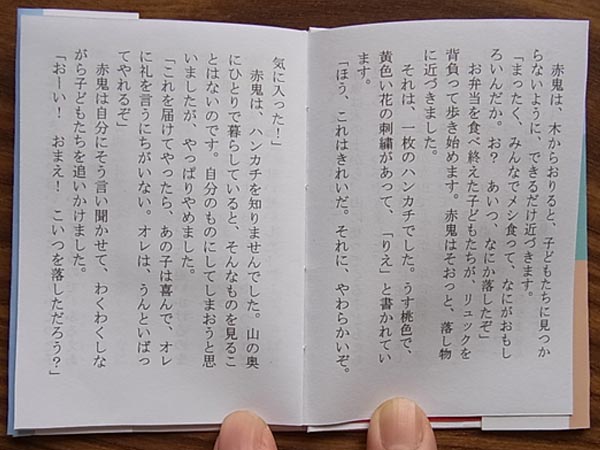 赤鬼は、木からおりると、子どもたちに見つか
らないように、できるだけ近づきます。
「まったく、みんなでメシ食って、なにがおもし
ろいんだか。お？　あいつ、なにか落したぞ」
　お弁当を食べ終えた子どもたちが、リュックを
背負って歩き始めます。赤鬼はそおっと、落し物
に近づきました。
　それは、一枚のハンカチでした。うす桃色で、
黄色い花の刺繍があって、「りえ」と書かれてい
ます。
「ほう、これはきれいだ。それに、やわらかいぞ。
気に入った！」
　赤鬼は、ハンカチを知りませんでした。山の奥
にひとりで暮らしていると、そんなものを見るこ
とはないのです。自分のものにしてしまおうと思
いましたが、やっぱりやめました。
「これを届けてやったら、あの子は喜んで、オレ
に礼を言うにちがいない。オレは、うんといばっ
てやれるぞ」
　赤鬼は自分にそう言い聞かせて、わくわくしな
がら子どもたちを追いかけました。
「おーい！　おまえ！　こいつを落しただろう？」